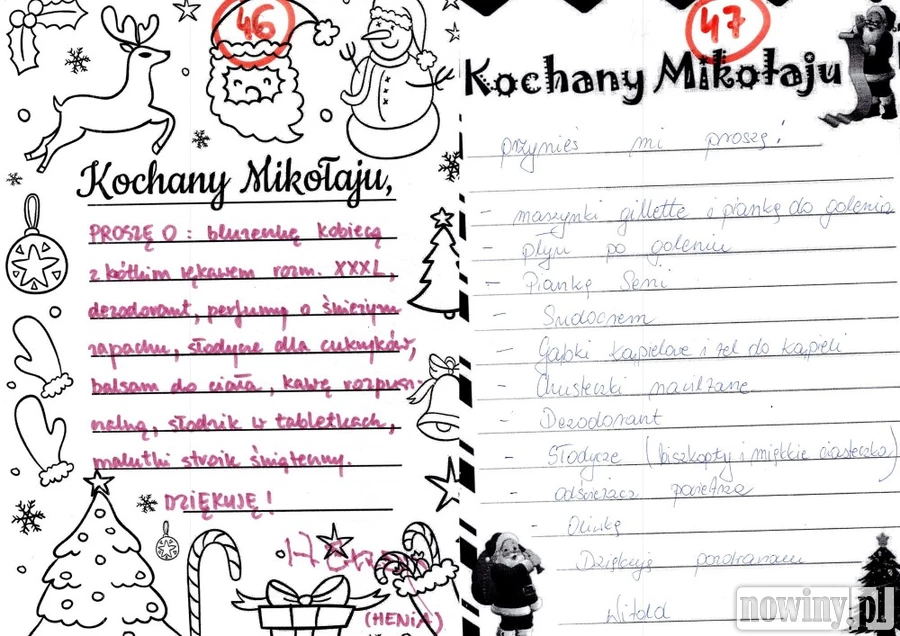 46
Kochany Mikołaju,
PROSZĘ O: bluzeczkę kobiecą
z krótkim rękawem rozm. XXXL,
dezodorant, perfumy o świeżym
zapachu, słodycze dla cukrzyków,
balsam do ciała, kawę rozpusz-
czalną, słodzik w tabletkach,
malutki stroik świąteczny.
DZIĘKUJĘ!
(HENIA)
47
Kochany Mikołaju
przynieś mi proszę!
- maszynki gillette i piankę do golenia
- płyn po goleniu
- Piankę Seni
- Sudocrem
- Gąbki kąpielowe i żel do kąpieli
- Chusteczki nawilżane
- Dezodorant
- Słodycze (biszkopty i miękkie ciasteczka)
- odświeżacz powietrza
- Oliwkę
Dziękuję pozdrawiam
Witold
nowiny.pl